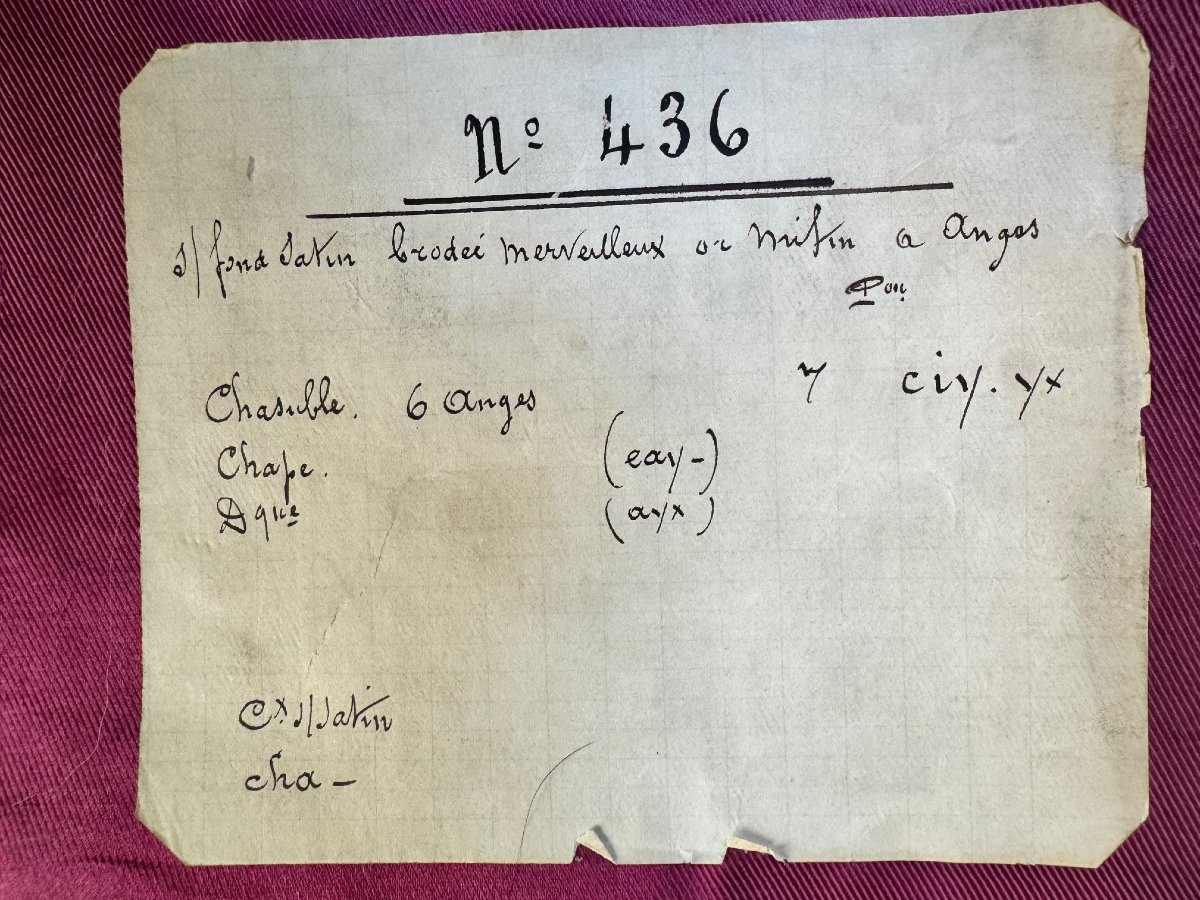 Nº 436
s/ fond satin brodeé merveilleux or mifin a Anges
Chasuble. 6 Anges 7 ciy. yx
Chape. (eay-)
Dque (ayx)
Cx s/satin
cha -